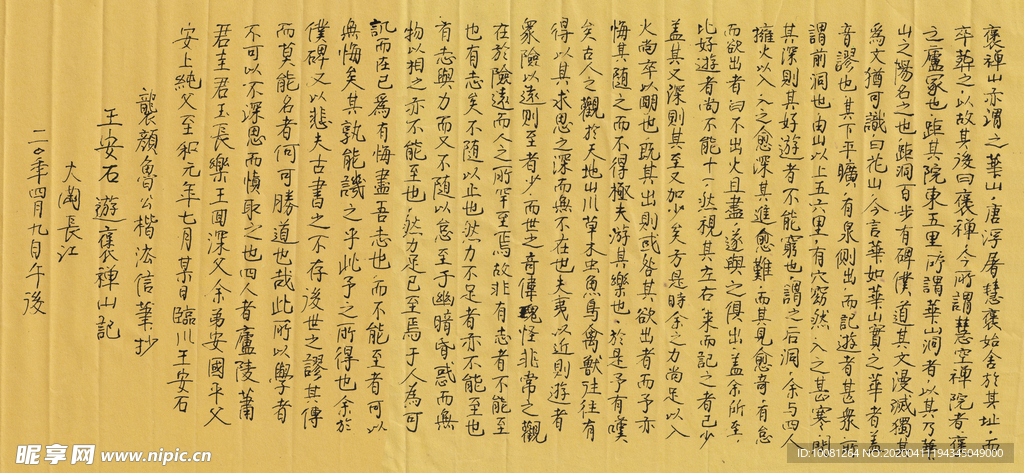 褒禪山亦謂之華山唐浮屠慧褒始舍於其址而
卒葬之以故其後曰褒禪今所謂慧空禪院者褒
之廬冢也距其院東五里所謂華山洞者以其乃華
山之陽名之也距洞百步有碑僕道其文漫滅獨其
為文猶可識曰花山今言華如華山實之華者蓋
音謬也其下平曠有泉側出而記遊者甚衆所
謂前洞也由山以上五六里有穴窈然入之甚寒問
其深則其好遊者不能窮也謂之后洞余与四人
擁火以入入之愈深其進愈難而其見愈奇有怠
而欲出者曰不出火且盡遂與之俱出蓋余所至
比好遊者尚不能十一然視其左右來而記之者已少
蓋其又深則其至又加少矣方是時余之力尚足以入
火尚卒以明也既其出則或咎其欲出者而予亦
悔其随之而不得極夫游其樂也於是予有嘆
矣古人之觀於天地山川草木虫魚鳥禽獸往往有
得以其求思之深而無不在也夫夷以近則遊者
衆險以遠則至者少而世之奇偉瑰怪非常之觀
在於險遠而人之所罕至焉故非有志者不能至
也有志矣不随以止也然力不足者亦不能至也
有志與力而又不随以怠至于幽暗昏惑而無
物以相之亦不能至也然力足已至焉于人為可
譏而在已為有悔盡吾志也而不能至者可以
無悔矣其孰能譏之乎此予之所得也余於
僕碑又以悲夫古書之不存後世之謬其傳
而莫能名者何可勝道也哉此所以學者
不可以不深思而慎取之也四人者廬陵蕭
君圭君玉長樂王回深父余弟安國平父
安上純父至和元年七月某日臨川王安石
龔顏魯公楷法信筆抄
王安石遊褒禪山記
大蘭長江
二〇年四月九日午後
昵享网 www.nipic.cn
ID:10081264 NO:20200411194345049000